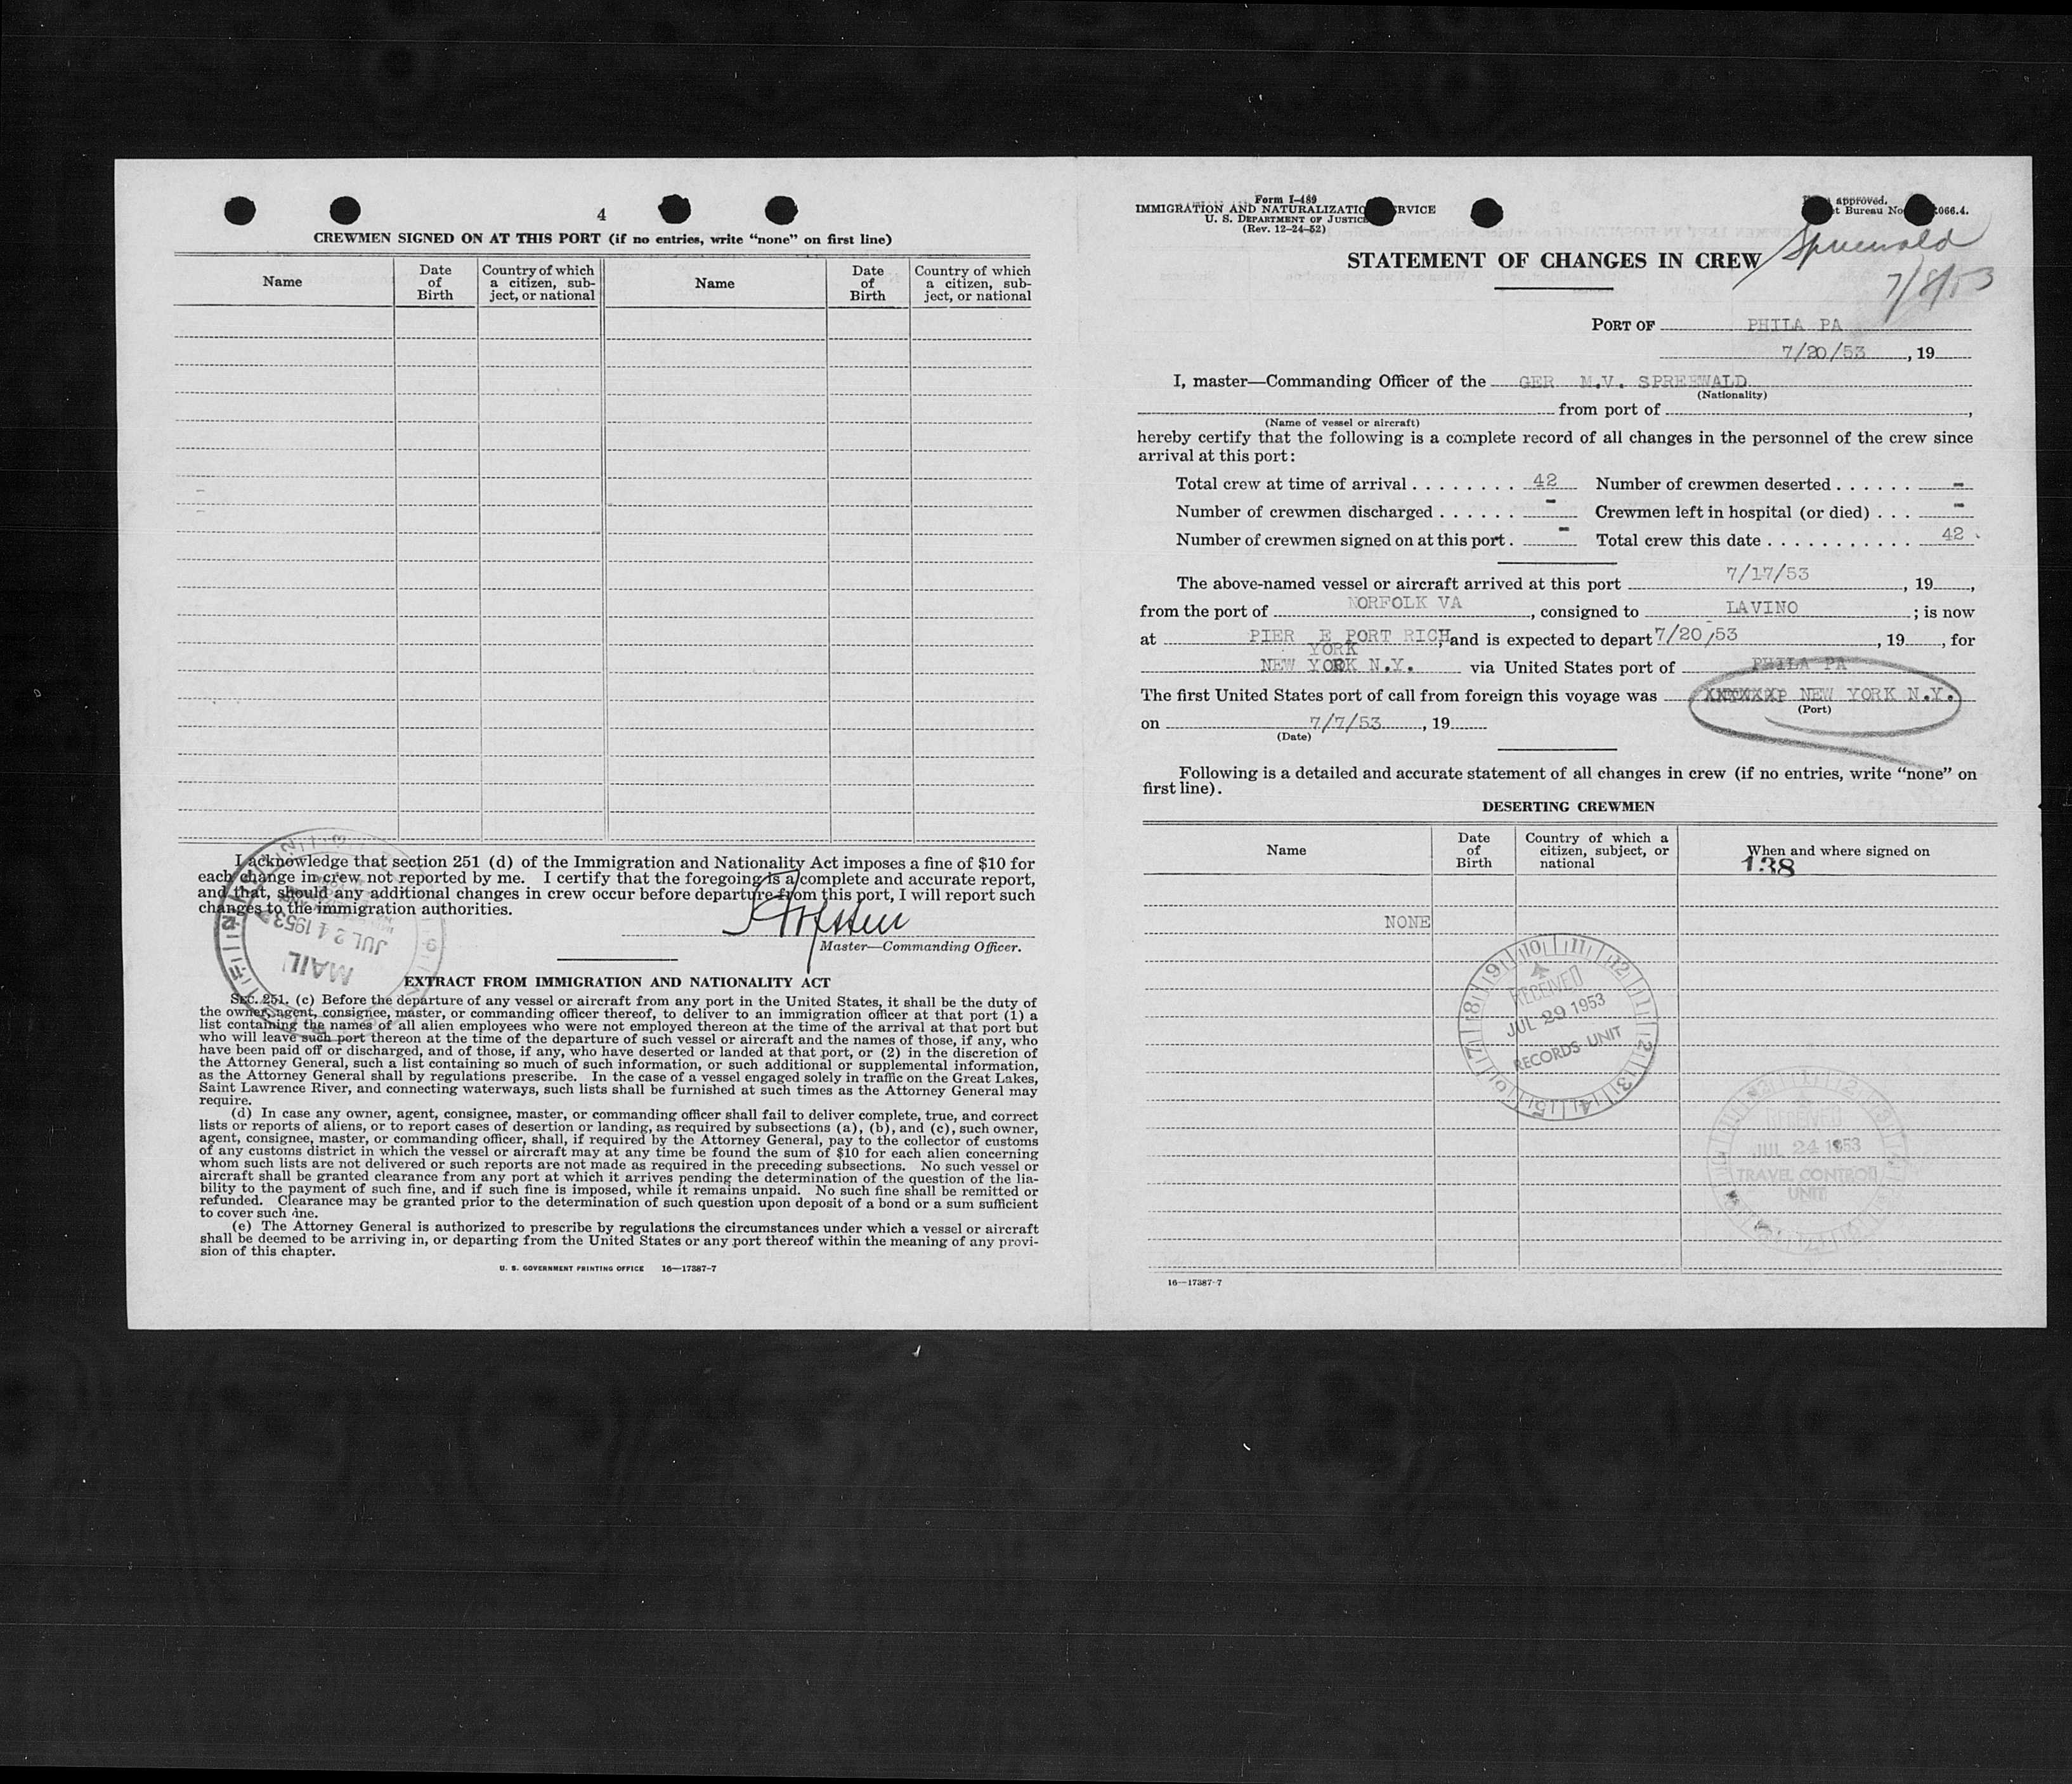 4
CREWMEN SIGNED ON AT THIS PORT (if no entries, write “none” on first line)
Name
Date of Birth
Country of which a citizen, sub-ject, or national
Name
Date of Birth
Country of which a citizen, sub-ject, or national
I acknowledge that section 251 (d) of the Immigration and Nationality Act imposes a fine of $10 for
each change in crew not reported by me. I certify that the foregoing is a complete and accurate report,
and that, should any additional changes in crew occur before departure from this port, I will report such
changes to the immigration authorities.
Master—Commanding Officer.
MAIL
JUL 24 1953
EXTRACT FROM IMMIGRATION AND NATIONALITY ACT
SEC. 251. (c) Before the departure of any vessel or aircraft from any port in the United States, it shall be the duty of
the owner, agent, consignee, master, or commanding officer thereof, to deliver to an immigration officer at that port (1) a
list containing the names of all alien employees who were not employed thereon at the time of the arrival at that port but
who will leave such port thereon at the time of the departure of such vessel or aircraft and the names of those, if any, who
have been paid off or discharged, and of those, if any, who have deserted or landed at that port, or (2) in the discretion of
the Attorney General, such a list containing so much of such information, or such additional or supplemental information,
as the Attorney General shall by regulations prescribe. In the case of a vessel engaged solely in traffic on the Great Lakes,
Saint Lawrence River, and connecting waterways, such lists shall be furnished at such times as the Attorney General may
require.
(d) In case any owner, agent, consignee, master, or commanding officer shall fail to deliver complete, true, and correct
lists or reports of aliens, or to report cases of desertion or landing, as required by subsections (a), (b), and (c), such owner,
agent, consignee, master, or commanding officer, shall, if required by the Attorney General, pay to the collector of customs
of any customs district in which the vessel or aircraft may at any time be found the sum of $10 for each alien concerning
whom such lists are not delivered or such reports are not made as required in the preceding subsections. No such vessel or
aircraft shall be granted clearance from any port at which it arrives pending the determination of the question of the lia-
bility to the payment of such fine, and if such fine is imposed, while it remains unpaid. No such fine shall be remitted or
refunded. Clearance may be granted prior to the determination of such question upon deposit of a bond or a sum sufficient
to cover such fine.
(e) The Attorney General is authorized to prescribe by regulations the circumstances under which a vessel or aircraft
shall be deemed to be arriving in, or departing from the United States or any port thereof within the meaning of any provi-
sion of this chapter.
U. S. GOVERNMENT PRINTING OFFICE 16—17387-7
Form I-489
IMMIGRATION AND NATURALIZATIO RVICE
U. S. DEPARTMENT OF JUSTIC
(Rev. 12-24-52)
approved.
t Bureau No. 066.4.
Spreewald
7/8/53
STATEMENT OF CHANGES IN CREW
PORT OF PHILA PA
7/20/53, 19
I, master—Commanding Officer of the GER M.V. SPREEWALD
(Nationality)
from port of ,
(Name of vessel or aircraft)
hereby certify that the following is a complete record of all changes in the personnel of the crew since
arrival at this port:
Total crew at time of arrival . . . . . . . . 42 Number of crewmen deserted . . . . . . -
Number of crewmen discharged . . . . . . - Crewmen left in hospital (or died) . . . -
Number of crewmen signed on at this port . - Total crew this date . . . . . . . . . . . 42
The above-named vessel or aircraft arrived at this port 7/17/53, 19 ,
from the port of NORFOLK VA, consigned to LAVINO; is now
at PIER E PORT RICH, and is expected to depart 7/20/53, 19 , for
YORK
NEW YORK N.Y. via United States port of PHILA PA
The first United States port of call from foreign this voyage was NEW YORK N.Y.
(Port)
on 7/7/53, 19
(Date)
Following is a detailed and accurate statement of all changes in crew (if no entries, write “none” on
first line).
DESERTING CREWMEN
Name
Date of Birth
Country of which a citizen, subject, or national
When and where signed on
138
NONE
RECEIVED
JUL 29 1953
RECORDS UNIT
RECEIVED
JUL 24 1953
TRAVEL CONTROL
UNIT
16—17387-7